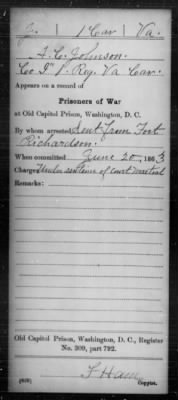 J. | 1 Cav. | Va.
A. C. Johnson.
Co. "I" 1. Reg. Va Cav.
Appears on a record of
Prisoners of War
at Old Capitol Prison, Washington, D. C.
By whom arrested Sent from Fort
Richardson.
When committed June 20, 1863
Charges Under sentence of court martial
Remarks:
Old Capitol Prison, Washington, D. C., Register
No. 309, part 792.
Copyist.